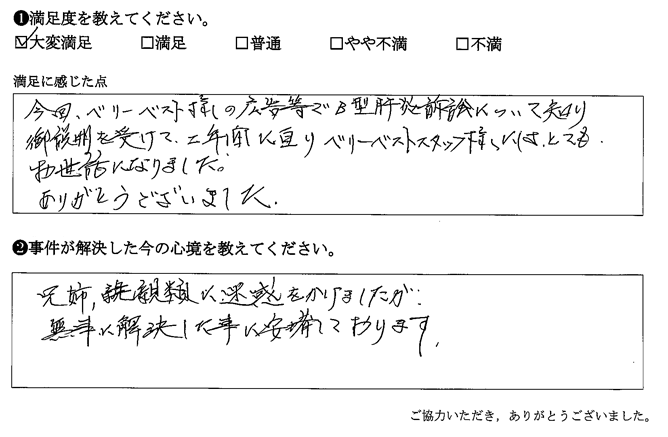 ❶満足度を教えてください。
☑大変満足 □満足 □普通 □やや不満 □不満
満足に感じた点
今回、ベリーベスト様の広告等でB型肝炎訴訟について知り
御説明を受けて、二年間に亘りベリーベストスタッフ様には、とても、
お世話になりました。
ありがとうございました.
❷事件が解決した今の心境を教えてください。
兄姉, 親類に迷惑をかけましたが、
無事に解決した事に安堵しております.
ご協力いただき，ありがとうございました。